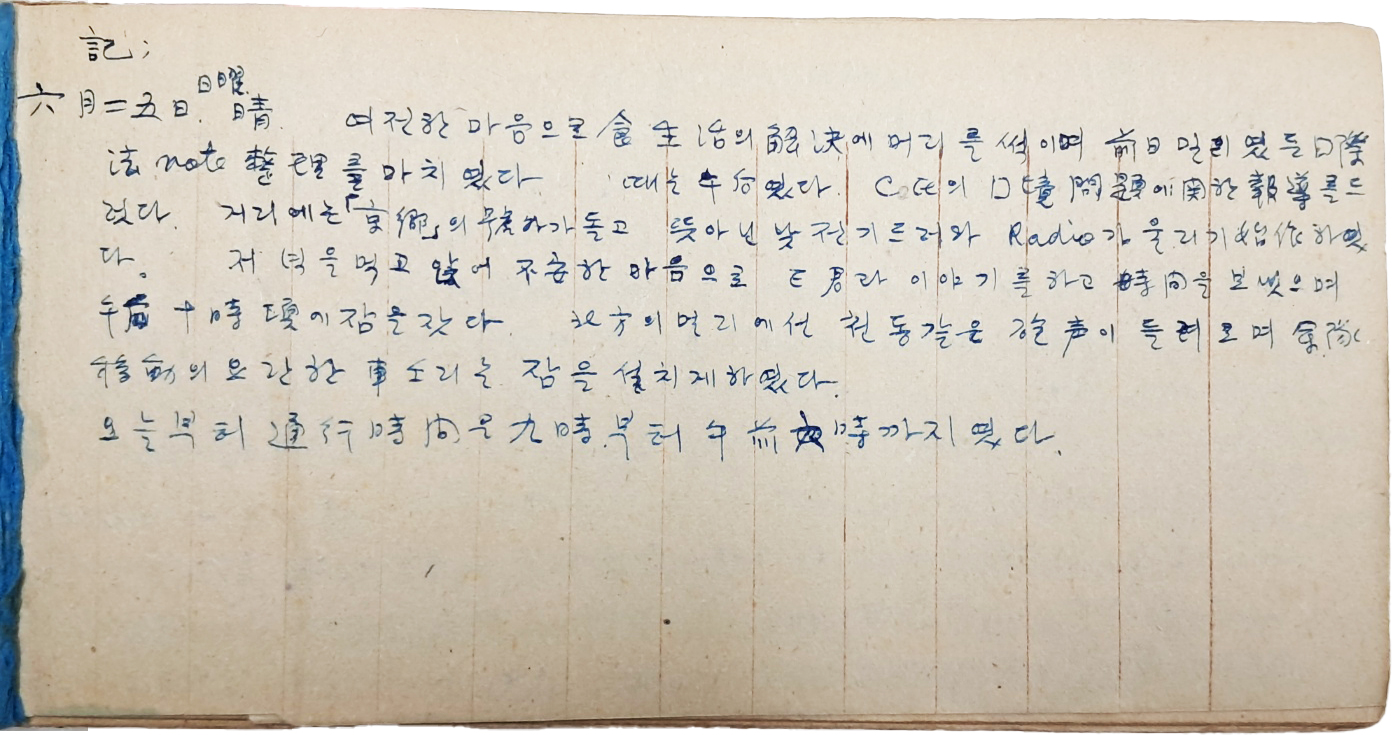 記;
六月二五日. 日曜. 晴. 여전한 마음으로 食生活의 解決에 머리를 썩이며 前日 밀리였든 口際
法 note 整理를 마치였다. 때는 午后였다. 의 口境問題에 関한 報導를 드
렀다. 거리에는 「京鄕」의 號外가 돌고 뜻아닌 낮 전기 드러와 Radio가 울리기 始作하였
다. 저녁을 먹고 앉어 不安한 마음으로 E君과 이야기를 하고 時間을 보냇으며
午后 十時 頃에 잠을 잣다. 北方의 멀리에선 천동같은 声이 들려 오며 軍隊
移動의 요란한 車소리는 잠을 설치게하였다.
오늘부터 通行時間은 九時부터 午前 時까지였다.